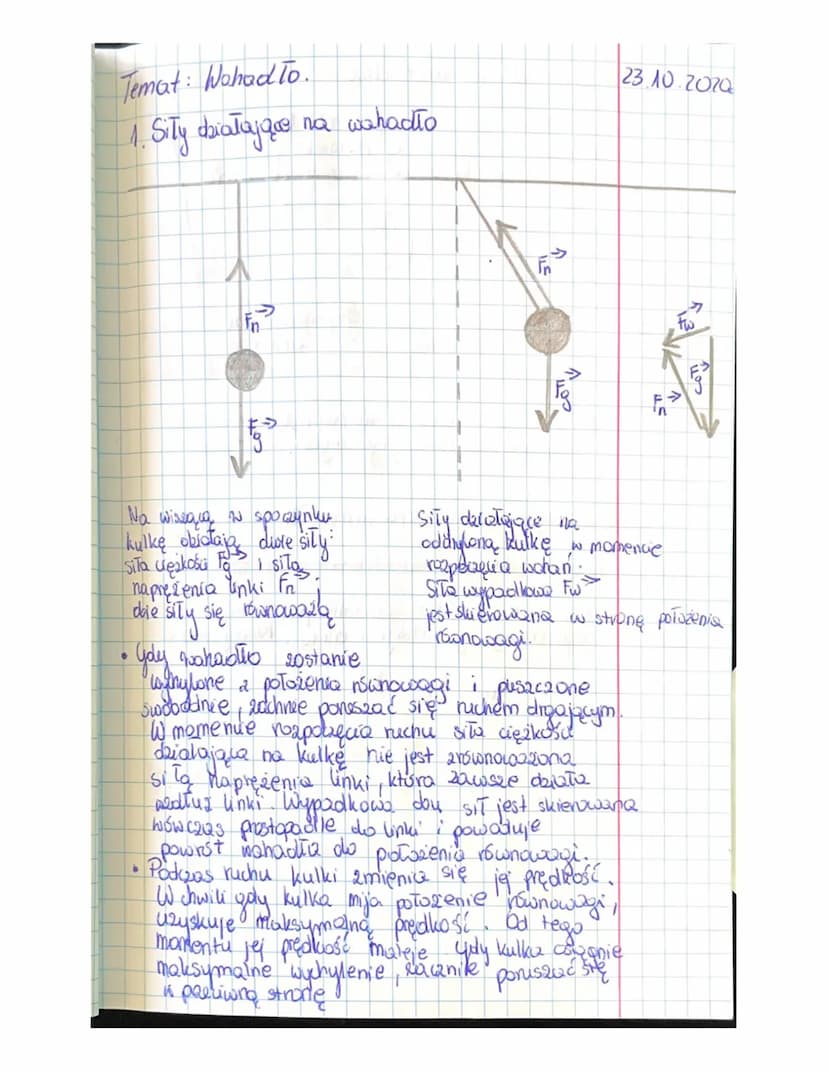 Temat: Wahadło.
23.10.2020
1. Siły działające na wahadło
Fn
Fg
Fn
Fg
Fw
Fg
Fn
Na wiszącą w spoczynku
kulkę działają dwie siły:
siła ciężkości Fg i siła
naprężenia linki Fn;
dwie siły się równoważą
Siły działające na
odchyloną kulkę w momencie
rozpoczęcia wahań.
Siła wypadkowa Fw
jest skierowana w stronę położenia
równowagi.
• Gdy wahadło zostanie
wychylone z położenia równowagi i puszczone
swobodnie, zacznie poruszać się ruchem drgającym.
W momencie rozpoczęcia ruchu siła ciężkości
działająca na kulkę nie jest zrównoważona
siłą naprężenia linki, która zawsze działa
wzdłuż linki. Wypadkowa obu sił jest skierowana
wówczas prostopadle do linki i powoduje
powrót wahadła do położenia równowagi.
• Podczas ruchu kulki zmienia się jej prędkość.
W chwili gdy kulka mija położenie równowagi,
uzyskuje maksymalną prędkość. Od tego
momentu jej prędkość maleje. Gdy kulka osiągnie
maksymalne wychylenie, zacznie poruszać się
w przeciwną stronę